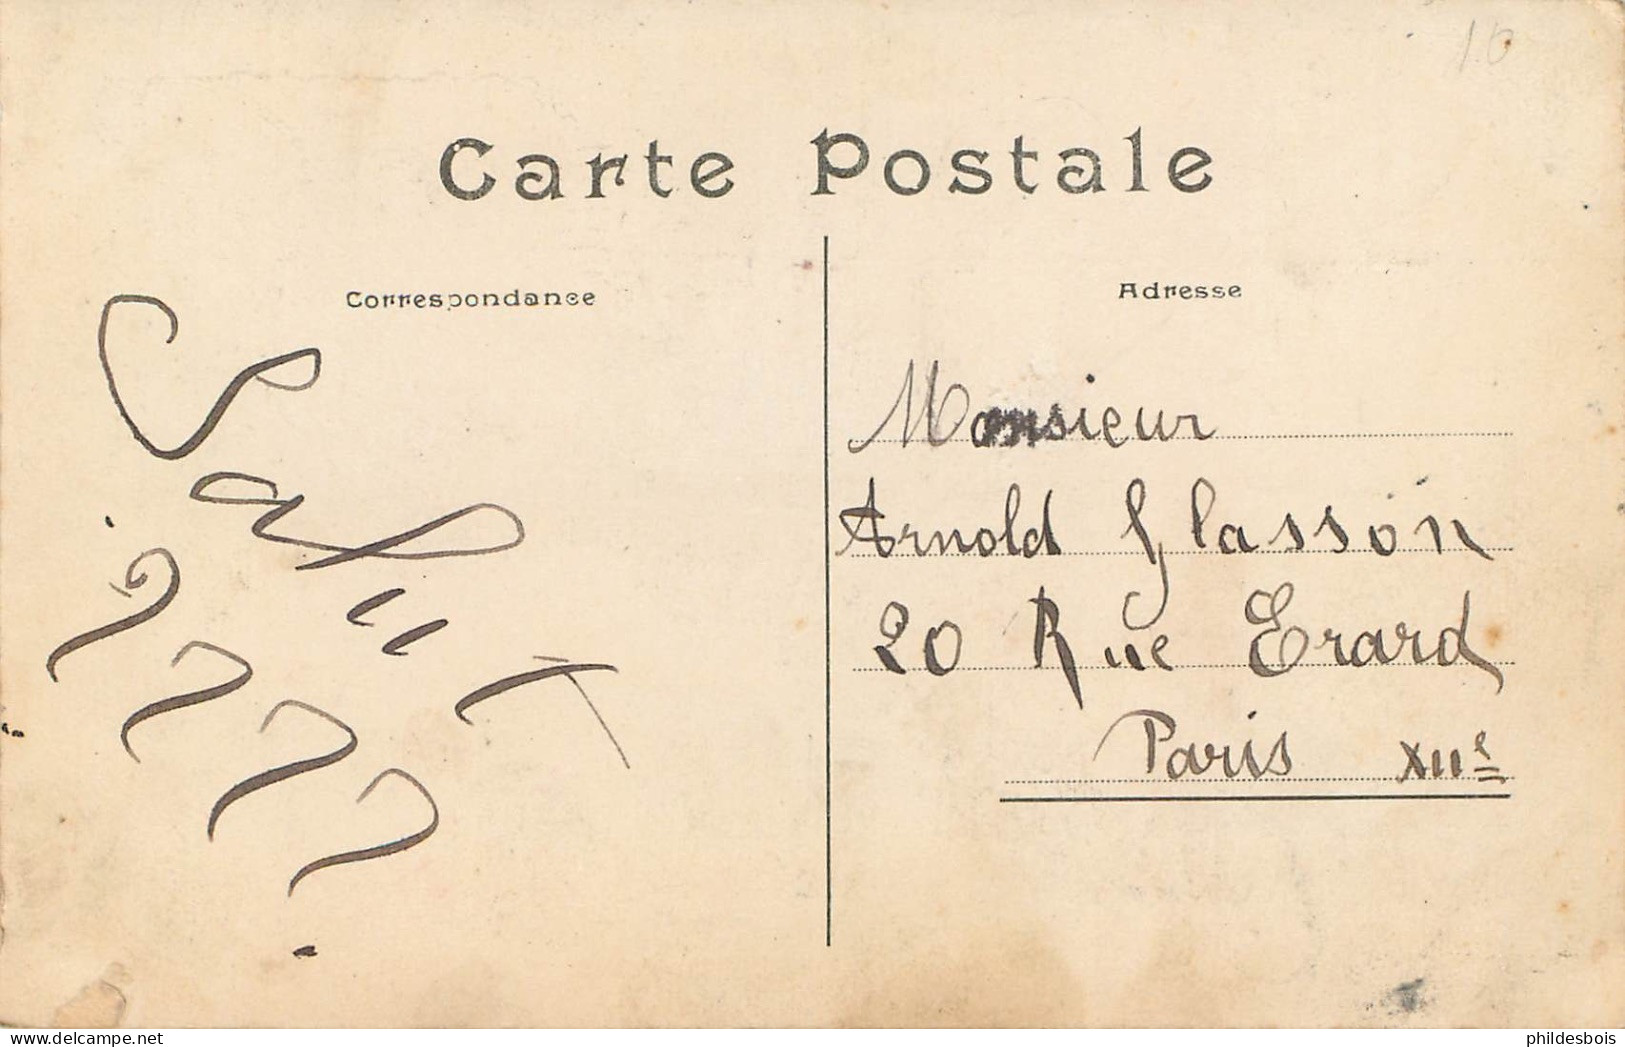 10
Carte Postale
Correspondance
Adresse
Salut
????
Monsieur
Arnold Glasson
20 Rue Erard
Paris XIIe
delcampe.net
phildesbois